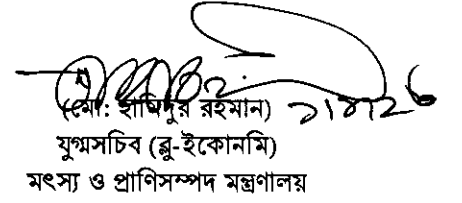 (মো: হামিদুর রহমান)
যুগ্মসচিব (ব্লু-ইকোনমি)
মৎস্য ও প্রাণিসম্পদ মন্ত্রণালয়